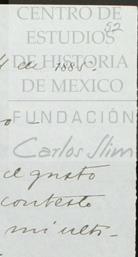 CENTRO DE
52
ESTUDIOS
DE HISTORIA
de 1885.
DE MEXICO
FUNDACIÓN
Carlos Slim
el gusto
contesto
mi ulti-